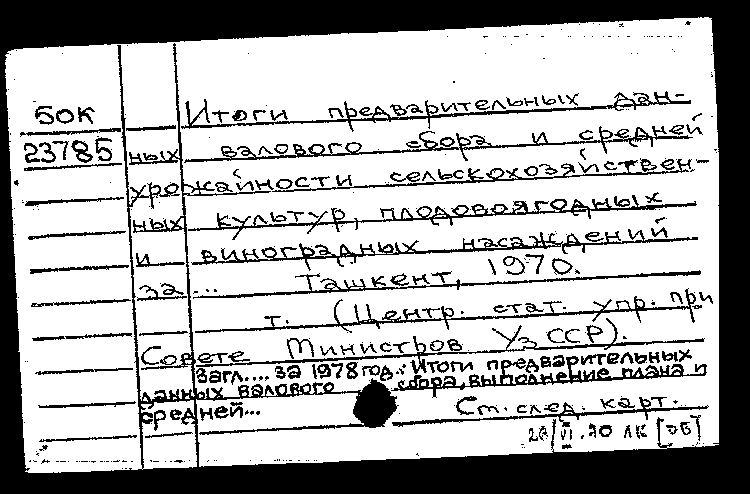 50К
23785
Итоги предварительных дан-
ных валового сбора и средней
урожайности сельскохозяйствен-
ных культур, плодовоягодных
и виноградных насаждений
за ... Ташкент, 1970.
т. (Центр. стат. упр. при
Совете Министров УзССР).
Загл.... за 1978 год.: Итоги предварительных
данных валового сбора, выполнение плана и
средней...
См. след. карт.